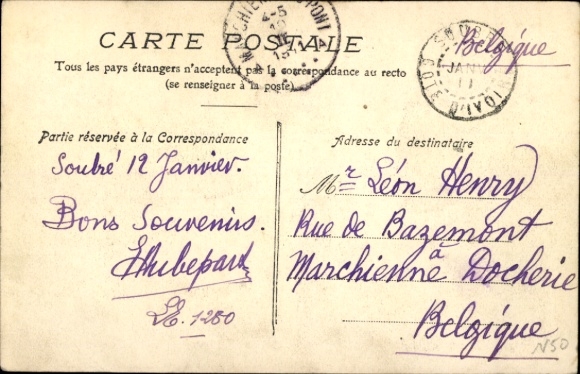 CARTE POSTALE
Tous les pays étrangers n'acceptent pas la correspondance au recto
(se renseigner à la poste)
Belgique
JANV
11
CÔTE D'IVOIRE
Partie réservée à la Correspondance
Soubré 12 Janvier.
Bons Souvenirs.
LE. 1280
Adresse du destinataire
Mr Léon Henry
Rue de Bazemont
à
Marchienne Docherie
Belgique
N50